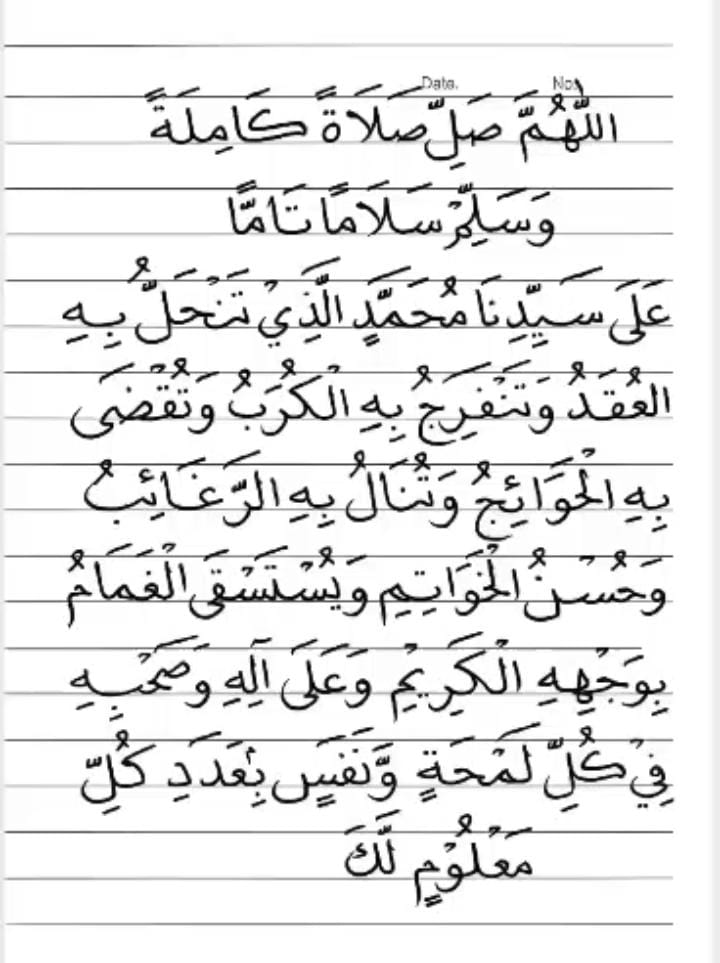 Date. No.
اللّٰهُمَّ صَلِّ صَلَاةً كَامِلَةً
وَسَلِّمْ سَلَامًا تَامًّا
عَلَى سَيِّدِنَا مُحَمَّدٍ الَّذِيْ تَنْحَلُّ بِهِ
العُقَدُ وَتَنْفَرِجُ بِهِ الْكُرَبُ وَتُقْضَى
بِهِ الْحَوَائِجُ وَتُنَالُ بِهِ الرَّغَائِبُ
وَحُسْنُ الْخَوَاتِمِ وَيُسْتَسْقَى الْغَمَامُ
بِوَجْهِهِ الْكَرِيْمِ وَعَلَى آلِهِ وَصَحْبِهِ
فِيْ كُلِّ لَمْحَةٍ وَّنَفَسٍ بِعَدَدِ كُلِّ
مَعْلُوْمٍ لَّكَ